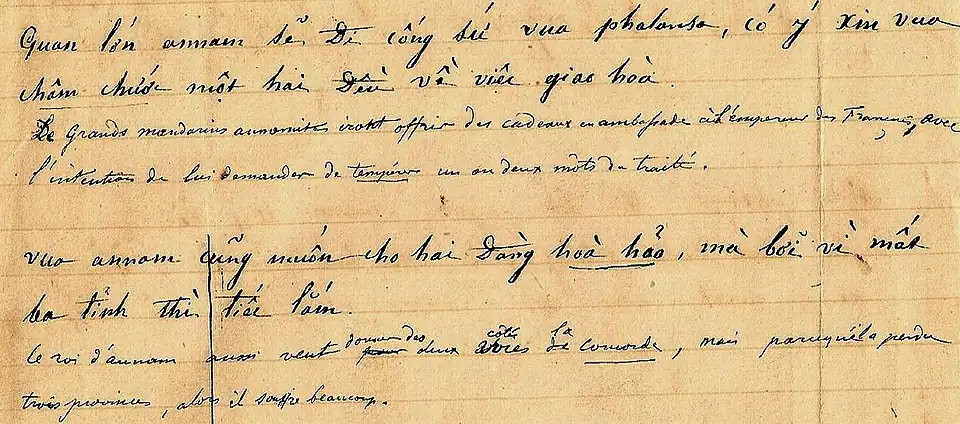 Quan lớn annam sẽ Di cống sứ vua phalansa, có ý xin vua
châm chước một hai Đều về việc giao hoà
Le Grands mandarins annamites iront offrir des cadeaux en ambassade à l'empereur des Français, avec
l'intention de lui demander de tempérer un ou deux môts du traité.
vua annam cũng muốn cho hai Đàng hoà hảo, mà bởi vì mất
ba tỉnh thì tiếc lắm.
le roi d'annam aussi veut donner des deux côtés la concorde, mais parcequ'il a perdu
trois provinces, alors il souffre beaucoup.